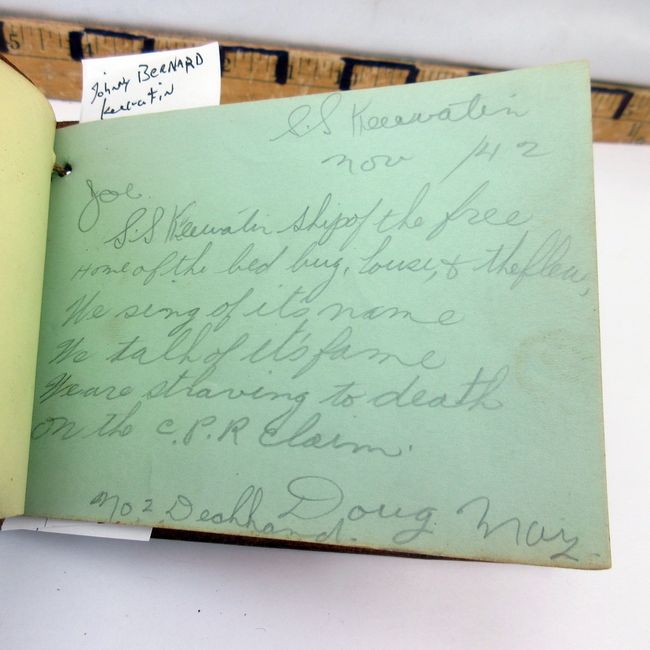 5 4 2 1
Johnny BERNARD
Keewatin
S.S Keewatin
Nov /42
Joe
S.S Keewatin ship of the free
Home of the bed bug, louse, & the flea,
We sing of it's name
We talk of it's fame
We are straving to death
on the C.P.R Claim.
No. 2 Deckhand.
Doug May.